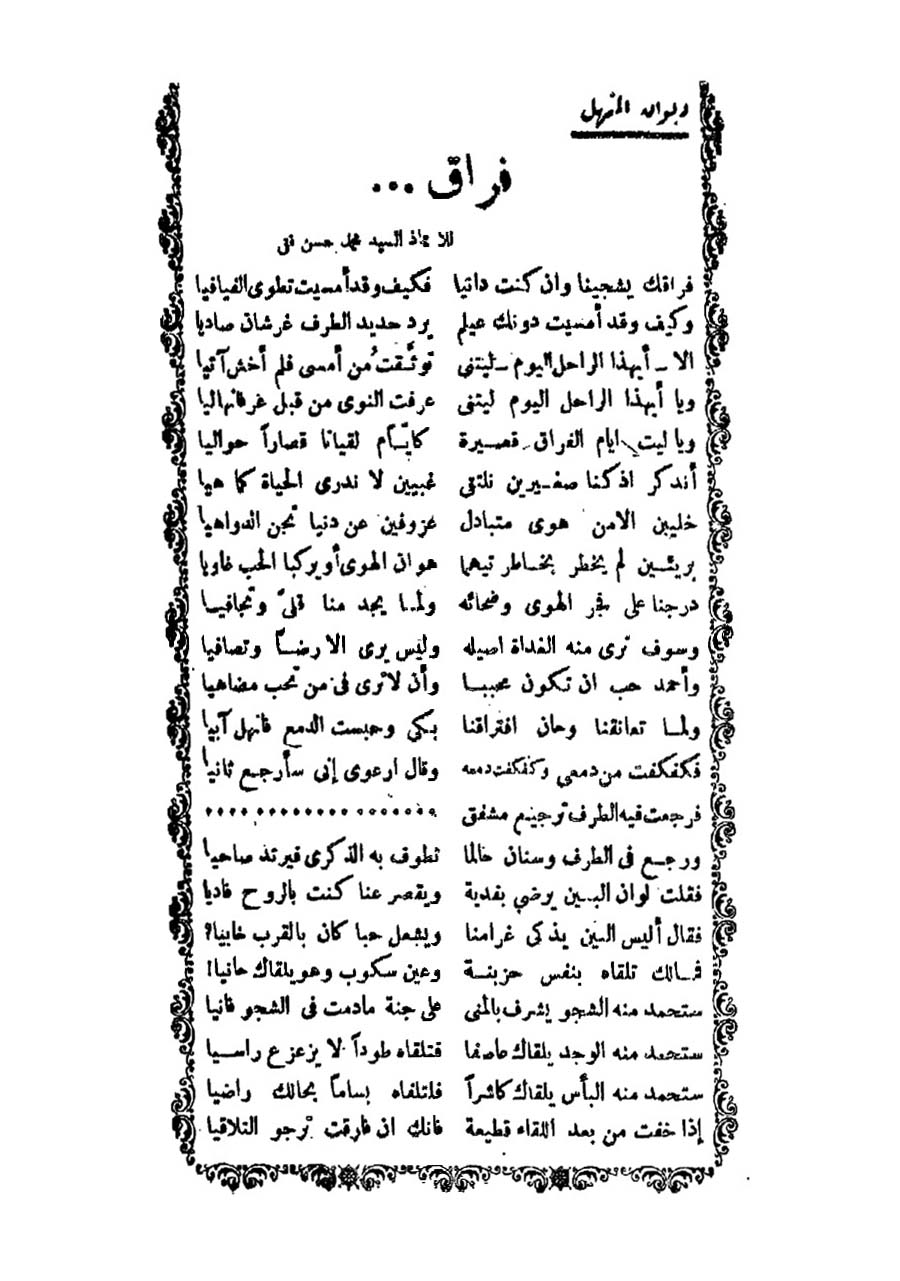 ديوان المنهل
فراق ...
للاستاذ السيد محمد حسن فقي
فراقك يشجينا وان كنت دانيا فكيف وقد أمسيت تطوى الفيافيا
وكيف وقد أمسيت دونك عيلم يرد حديد الطرف غرشان صاديا
الا ــ أيهذا الراحل اليوم ــ ليتنى توثقت من أمسى فلم أخش آتيا
ويا أيهذا الراحل اليوم ليتنى عرفت النوى من قبل عرفانهاليا
ويا ليت ايام الفراق قصيرة كأيّام لقيانا قصاراً حواليا
أتذكر اذكنا صغيرين نلتقى غبيين لا ندرى الحياة كما هيا
خليين الامن هوى متبادل عزوفين عن دنيا تجن الدواهيا
بريئين لم يخطر بخاطر تيهما هوان الهوى أو يركبا الحب غاويا
درجنا على فجر الهوى وضحائه ولما يجد منا قلىً وتجافيا
وسوف ترى منه الغداة اصيله وليس يرى الا رضاً وتصافيا
وأحمد حب ان تكون محببا وأن لا ترى فى من تحب مضاهيا
ولما تعانقنا وحان افتراقنا بكى وحبست الدمع فانهل آبيا
فكفكفت من دمعي وكفكفت دمعه وقال ارعوى إنى سأرجع ثانيا
فرجعت فيه الطرف ترجيع مشفق ..................
ورجع فى الطرف وسنان حالما تطوف به الذكرى فيرتد صاحيا
فقلت لوان البين يرضي بفدية ويقصر عنا كنت بالروح فاديا
فقال أليس البين يذكى غرامنا ويشعل حبا كان بالقرب خابيا؟
فمالك تلقاه بنفس حزينة وعين سكوب وهو يلقاك حانيا!
ستحمد منه الشجو يشرف بالمنى على جنة مادمت فى الشجو فانيا
ستحمد منه الوجد يلقاك عاصفا فتلقاه طوداً لا يزعزع راسيا
ستحمد منه البأس يلقاك كاشراً فتلقاه بساماً بحالك راضيا
إذا خفت من بعد اللقاء قطيعة فانك ان فارقت ترجو التلاقيا